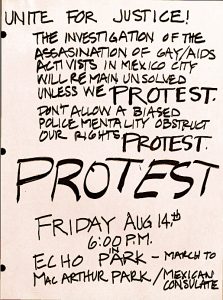 UNITE FOR JUSTICE!
THE INVESTIGATION OF THE
ASSASINATION OF GAY/AIDS
ACTIVISTS IN MEXICO CITY
WILL REMAIN UNSOLVED
UNLESS WE PROTEST.
DON'T ALLOW A BIASED
POLICE MENTALITY OBSTRUCT
OUR RIGHTS. PROTEST.
PROTEST
FRIDAY AUG 14,th
6:00 P.M.
IN
ECHO PARK – MARCH TO
MAC ARTHUR PARK/MEXICAN
CONSULATE